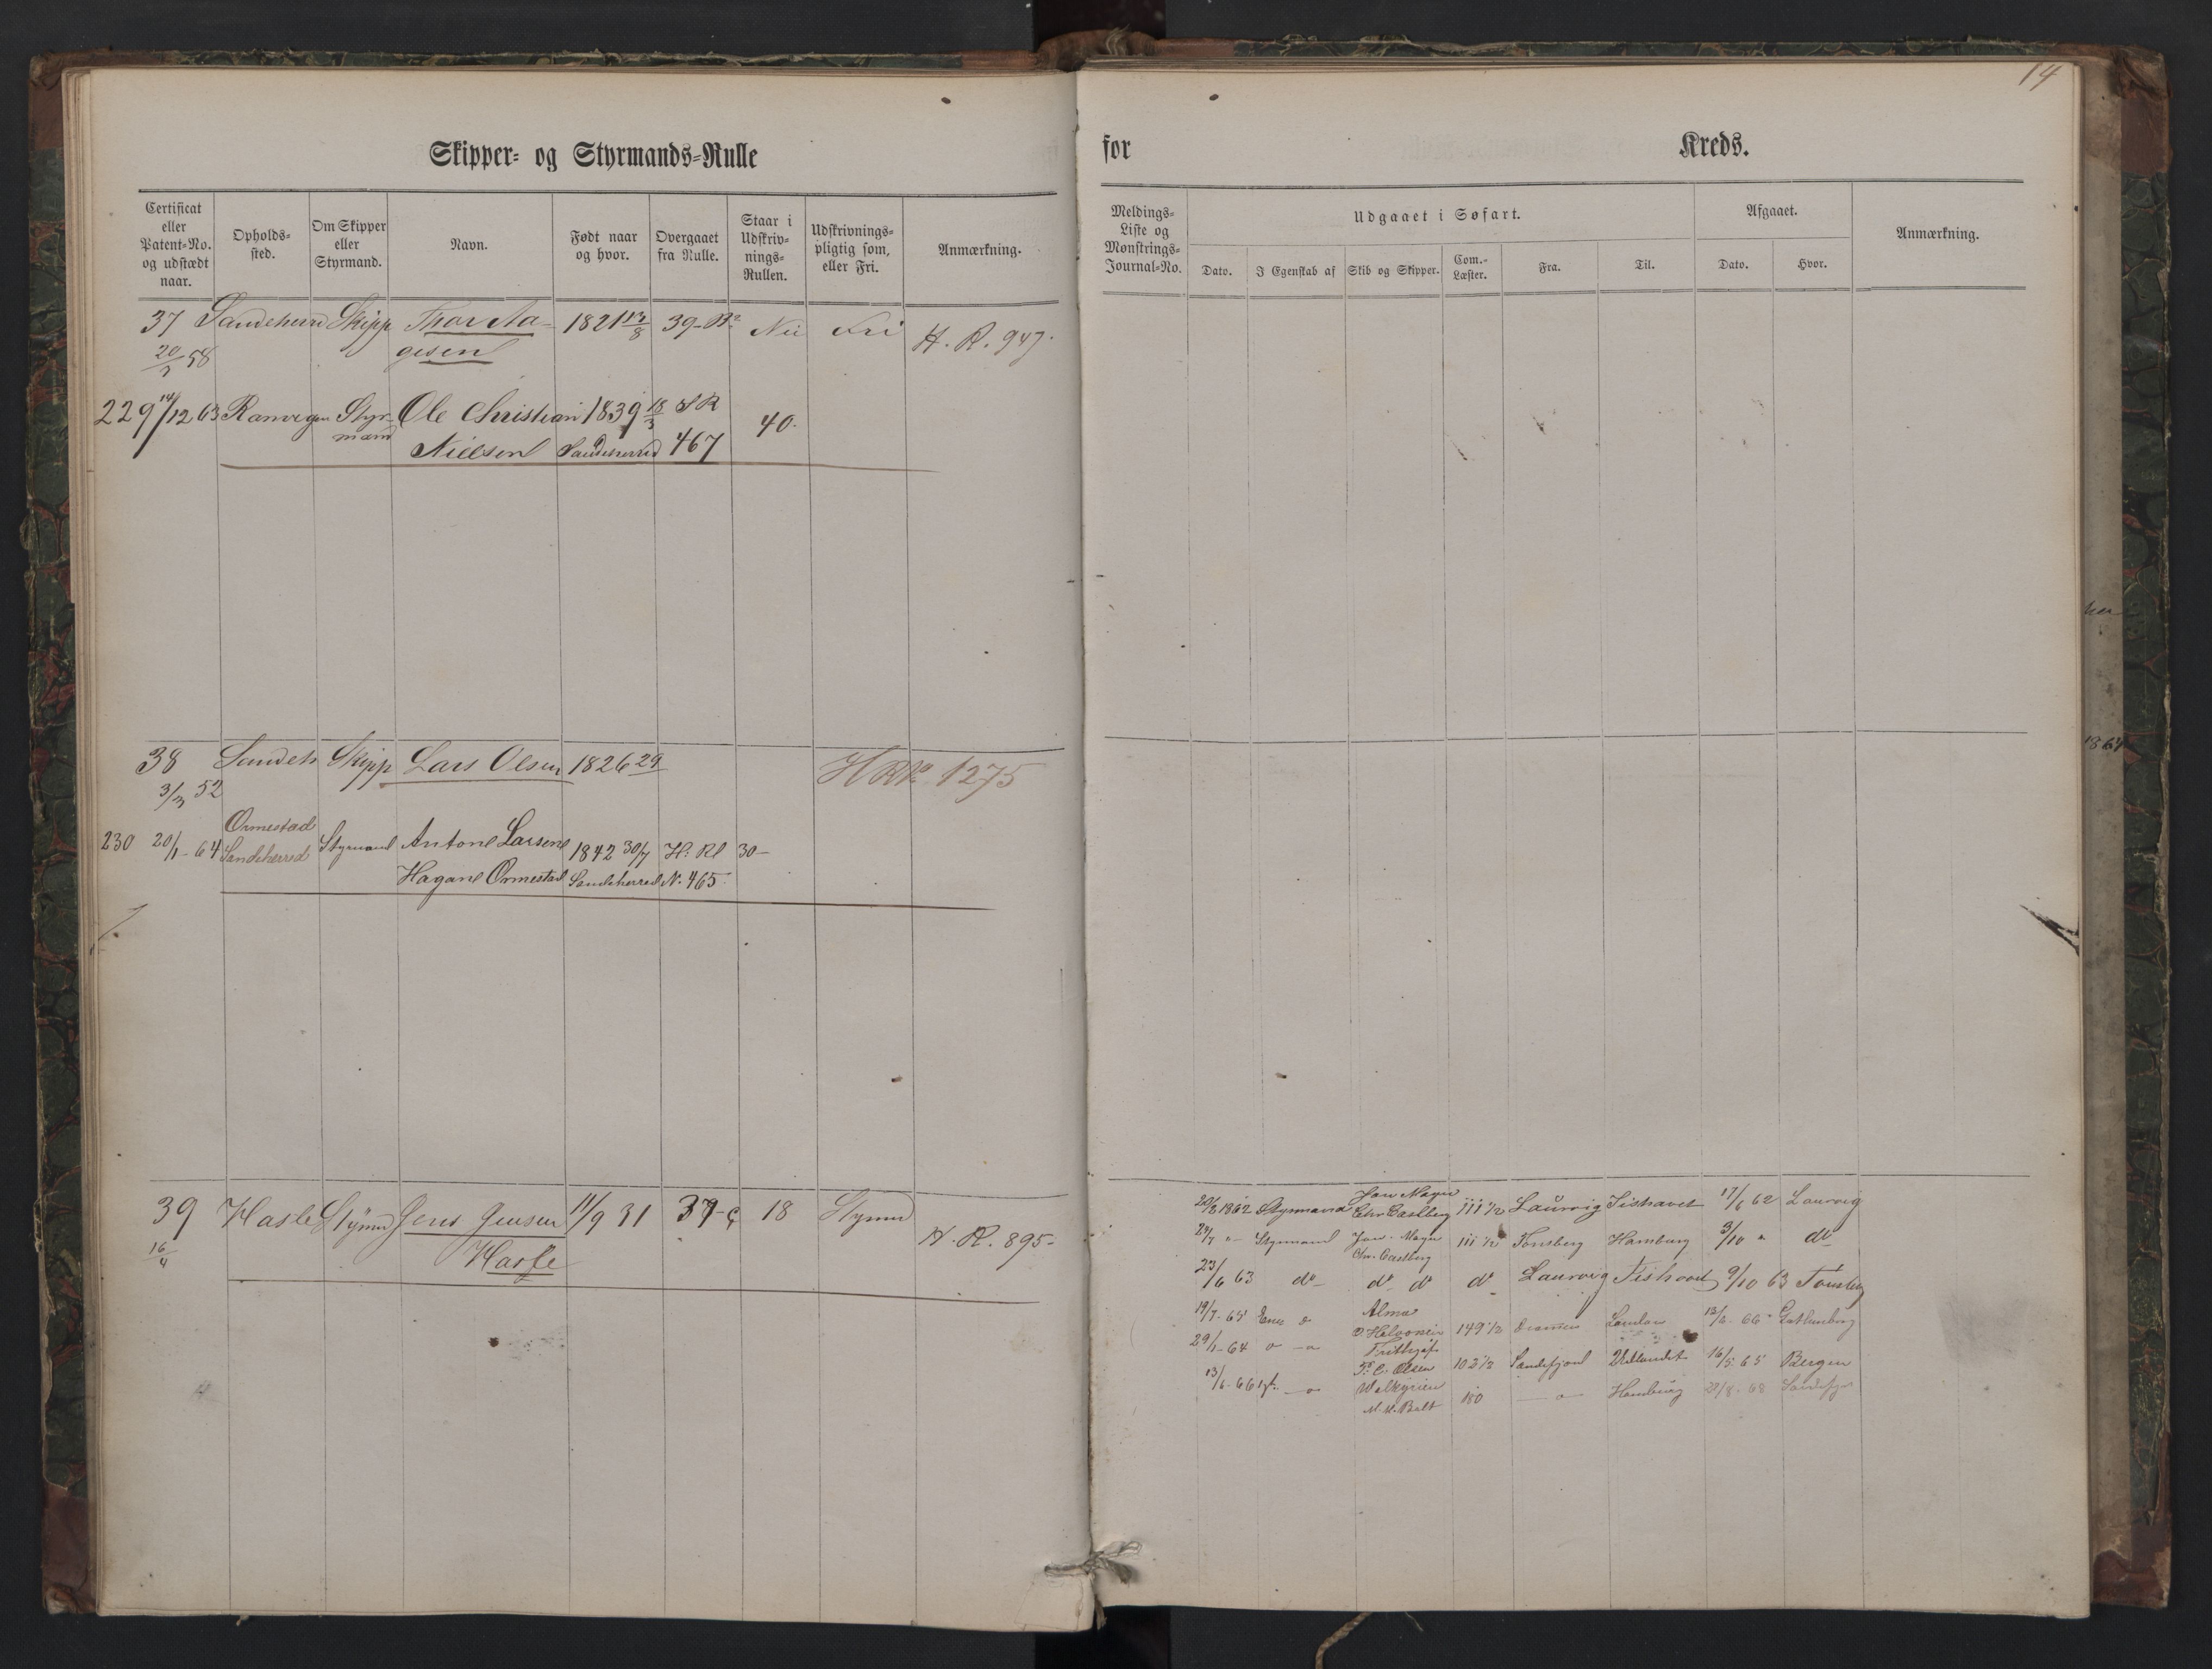 14
Skipper- og Styrmands-Rulle
for Kreds.
Certificat eller Patent-No. og udstædt naar.
Opholds-sted.
Om Skipper eller Styrmand.
Navn.
Født naar og hvor.
Overgaaet fra Rulle.
Staar i Udskriv-nings-Rullen.
Udskrivnings-pligtig som, eller Fri.
Anmærkning.
Meldings-Liste og Mønstrings-Journal-No.
Udgaaet i Søfart.
Dato.
I Egenskab af
Skib og Skipper.
Com.-Læster.
Fra.
Til.
Afgaaet.
Dato.
Hvor.
Anmærkning.
37 Sandeherrd Skipp Thor Aa- 1821 13/8 39-B2 Nei Fri H. R. 947.
58 gesen
229 14/12 63 Ranvigen Styr- Ole Christian 1839 18/3 SR 40.
mand Nielsen Sandeherred 467
38 Sandeh Skipp Lars Olsen 1826 29 HRNo 1275
3/3 52
Ormestad
230 20/1-64 Sandeherred Styrmand Anton Larsen 1842 30/7 H. Rl 30-
Hagane Ormestad Sandeherred N. 465.
39 Hasle Styrmd Jens Jensen 11/9 31 37-c 18 Styrmd H. R. 895-
16/4 Hasle
Jow Mayn
20/2 1862 Styrmand Chr Castberg 111 1/2 Laurvig Fishavet 17/6 62 Laurvig
24/7 "- Styrmand Jow. Mayn 111 1/2 Tønsberg Hamburg 3/10 " do
Chr. Castberg
23/6 63 do- do do do Laurvig 9/10 63 Tønsberg
Alma
19/7-65 149 1/2 Drammen London 66 Gothenborg
Frithjof
29/1-64 F. C. Olsen 102 1/2 Sandefjord Udlandet 16/5 65 Bergen
13/6-66 Walkyrien 180 Hamburg 68 Sandefj
M. M. Bull
her
1864